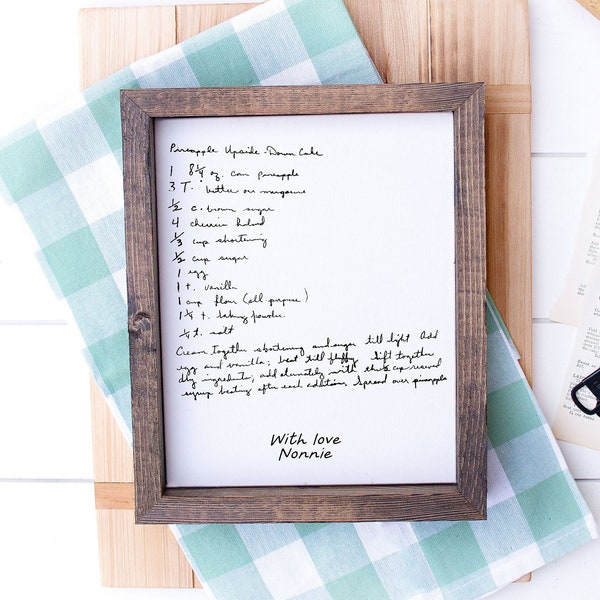 Pineapple Upside-Down Cake
1 8¼ oz. can pineapple
3 T. butter or margarine
½ c. brown sugar
4 cherries halved
⅓ cup shortening
½ cup sugar
1 egg
1 t. vanilla
1 cup flour (all purpose)
1¼ t. baking powder
¼ t. salt
Cream together shortening and sugar till light Add
egg and vanilla; beat till fluffy Sift together
dry ingredients, add alternately with the ½ cup reserved
syrup beating after each addition. Spread over pineapple
With love
Nonnie